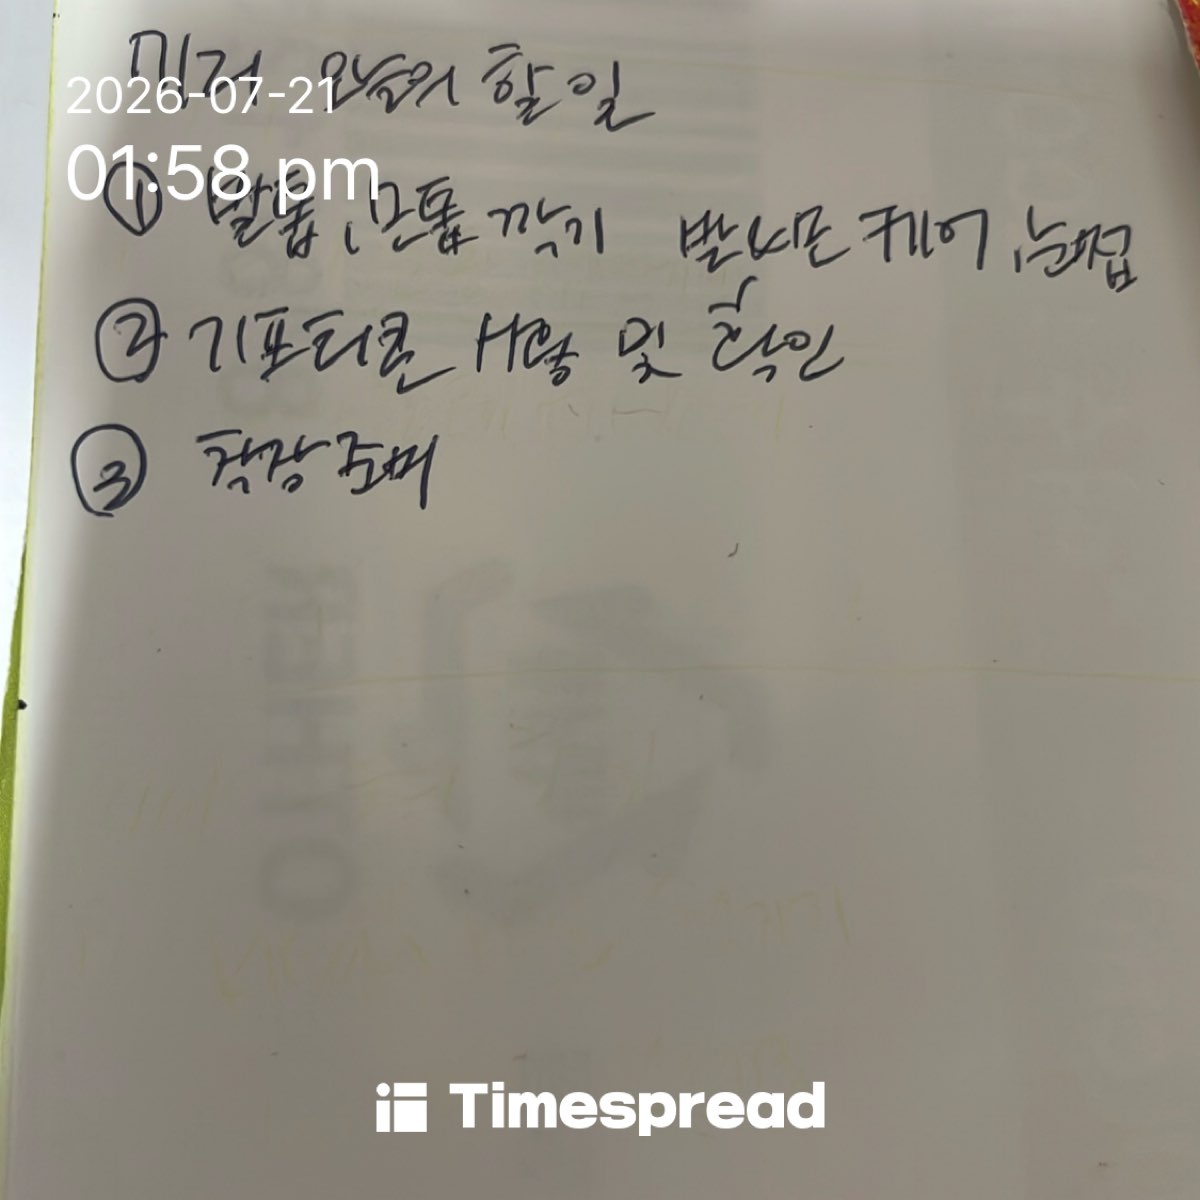 미리 오늘의 할 일
2026-07-21
01:58 pm
① 발톱, 손톱 깎기 발 케어,
② 기프티콘 사용 및 확인
③ 준비
Timespread